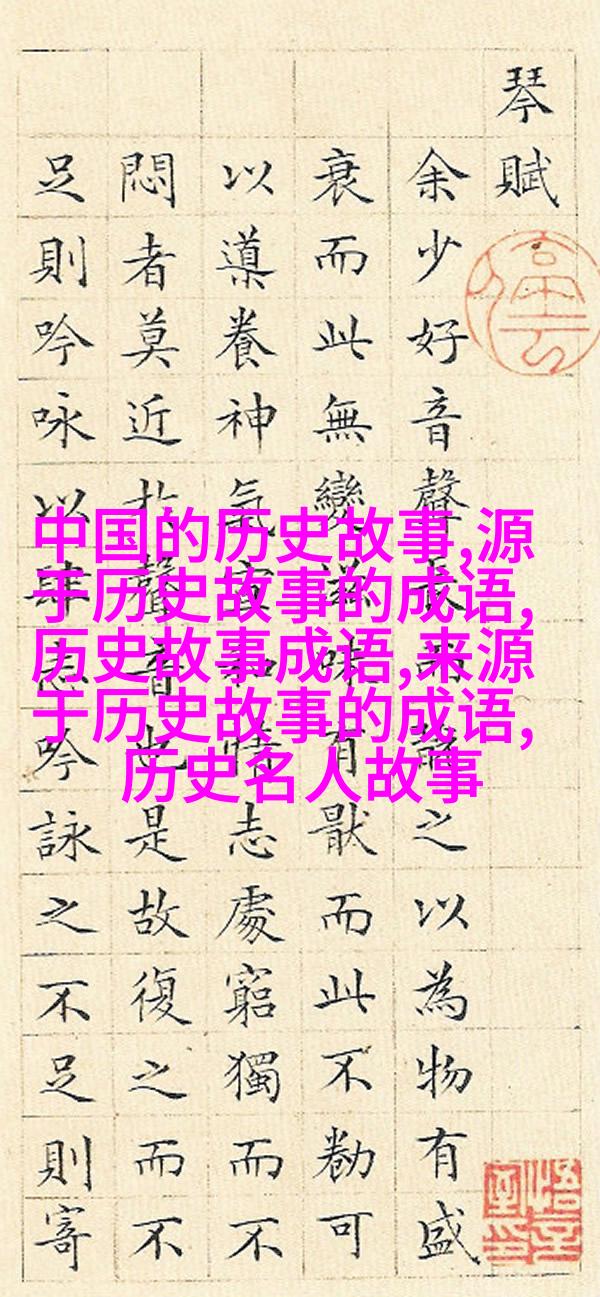 琴賦
余少好音聲長之以為物有盛
衰而此無變滋味有猒而此不勌可
以導養神氣宣和情志處窮獨而不
悶者莫近於聲音也是故復之而不
足則吟咏以肆志吟詠之不足則寄
中国的历史故事,源
于历史故事的成语,
历史故事成语,来源
于历史故事的成语,
历史名人故事